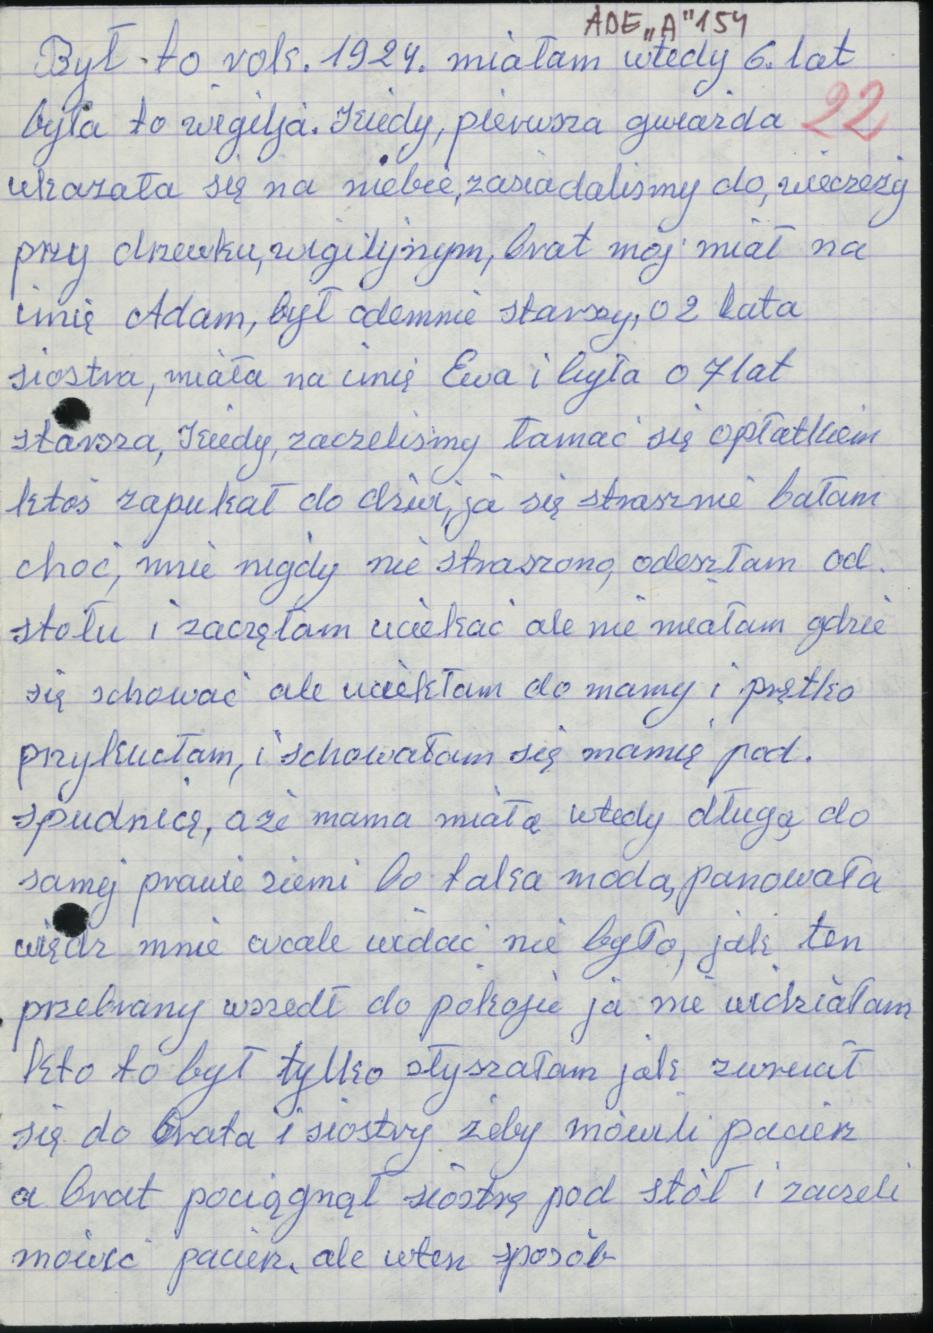 ADE „A" 154
Był to rok. 1924. miałam wtedy 6. lat
22
była to wigilja. Kiedy, pierwsza gwiazda
ukazała się na niebie, zasiadalismy do, wieczeży
przy drzewku, wigilijnym, brat mój miał na
imię Adam, był odemnie starszy, o 2 lata
siostra, miała na imię Ewa i była o 7 lat
starsza, Kiedy, zaczelismy łamać się opłatkiem
ktoś zapukał do dzwi, ja się strasznie bałam
choć, mnie nigdy nie straszono, odeszłam od.
stołu i zaczęłam uciekać ale nie miałam gdzie
się schować ale uciekłam do mamy i prętko
przykucłam, i schowałam się mamię pod.
spudnicę, a że mama miała wtedy długą do
samej prawie ziemi bo taka moda, panowała
więdz mnie wcale widać nie było, jak ten
przebrany wszedł do pokoju ja nie widziałam
kto to był tylko słyszałam jak zwrucał
się do brata i siostry żeby mówili pacierz
a brat pociągnął siostrę pod stół i zaczeli
mówić pacierz. ale wten sposób